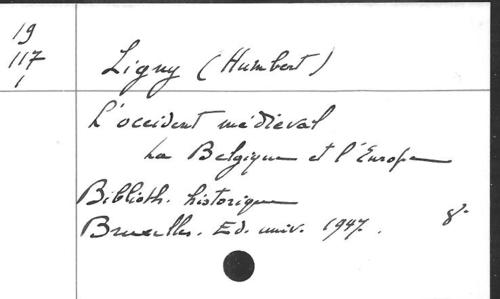 19
117
1
Ligny (Humbert)
L'occident médiéval
La Belgique et l'Europe
Biblioth. historique
Bruxelles. Ed. univ. 1947. 8°